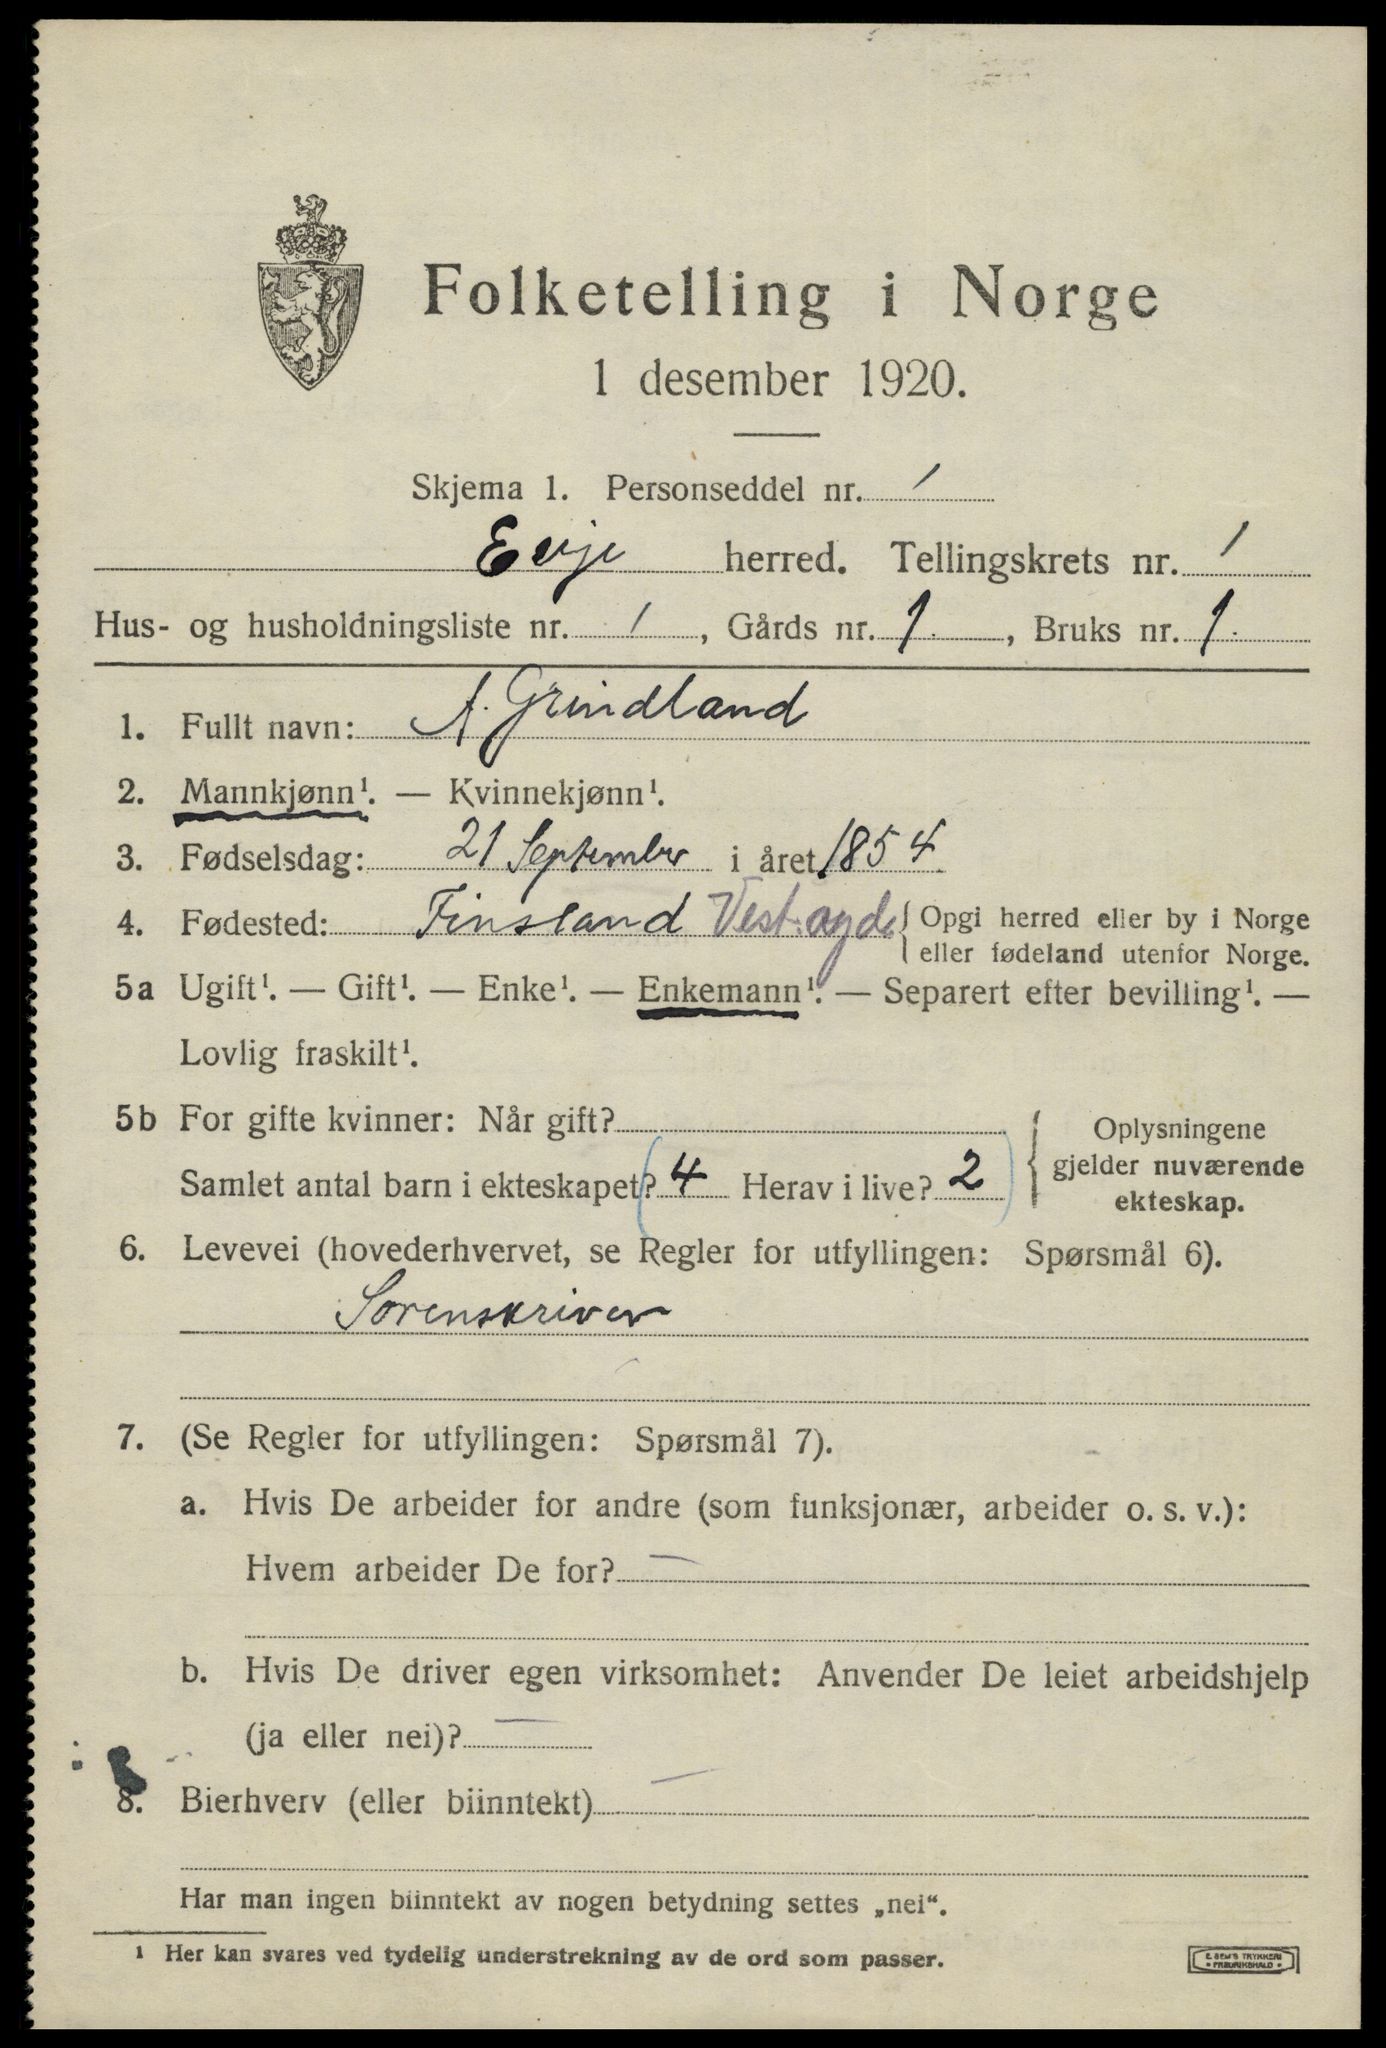 Folketelling i Norge
1 desember 1920.
Skjema 1. Personseddel nr. 1
Evje herred. Tellingskrets nr. 1
Hus- og husholdningsliste nr. 1, Gårds nr. 1., Bruks nr. 1.
1. Fullt navn: A. Grindland
2. Mannkjønn¹. — Kvinnekjønn¹.
3. Fødselsdag: 21 September i året 1854
4. Fødested: Finsland Vest-agd. { Opgi herred eller by i Norge
eller fødeland utenfor Norge.
5a Ugift¹. — Gift¹. — Enke¹. — Enkemann¹. — Separert efter bevilling¹. —
Lovlig fraskilt¹.
5b For gifte kvinner: Når gift?
Samlet antal barn i ekteskapet? (4 Herav i live? 2)
Oplysningene
gjelder nuværende
ekteskap.
6. Levevei (hovederhvervet, se Regler for utfyllingen: Spørsmål 6).
Sorenskriver
7. (Se Regler for utfyllingen: Spørsmål 7).
a. Hvis De arbeider for andre (som funksjonær, arbeider o. s. v.):
Hvem arbeider De for? —
b. Hvis De driver egen virksomhet: Anvender De leiet arbeidshjelp
(ja eller nei)? —
8. Bierhverv (eller biinntekt) —
Har man ingen biinntekt av nogen betydning settes „nei“.
¹ Her kan svares ved tydelig understrekning av de ord som passer.
E. SEM'S TRYKKERI
• FREDRIKSHALD •